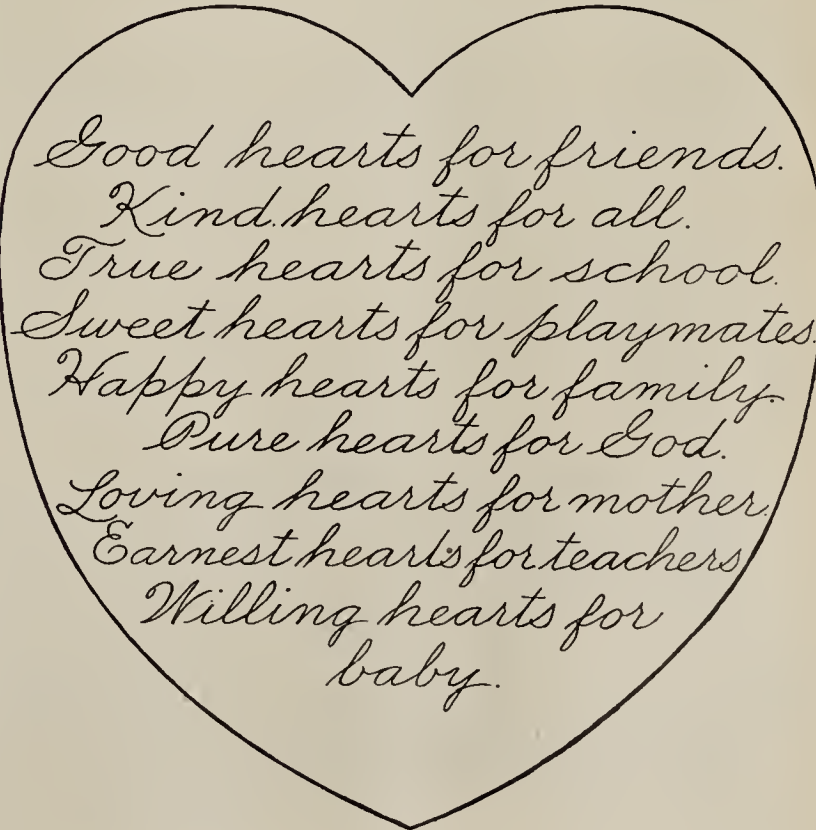 Good hearts for friends.
Kind hearts for all.
True hearts for school.
Sweet hearts for playmates.
Happy hearts for family.
Pure hearts for God.
Loving hearts for mother.
Earnest hearts for teachers
Willing hearts for
baby.